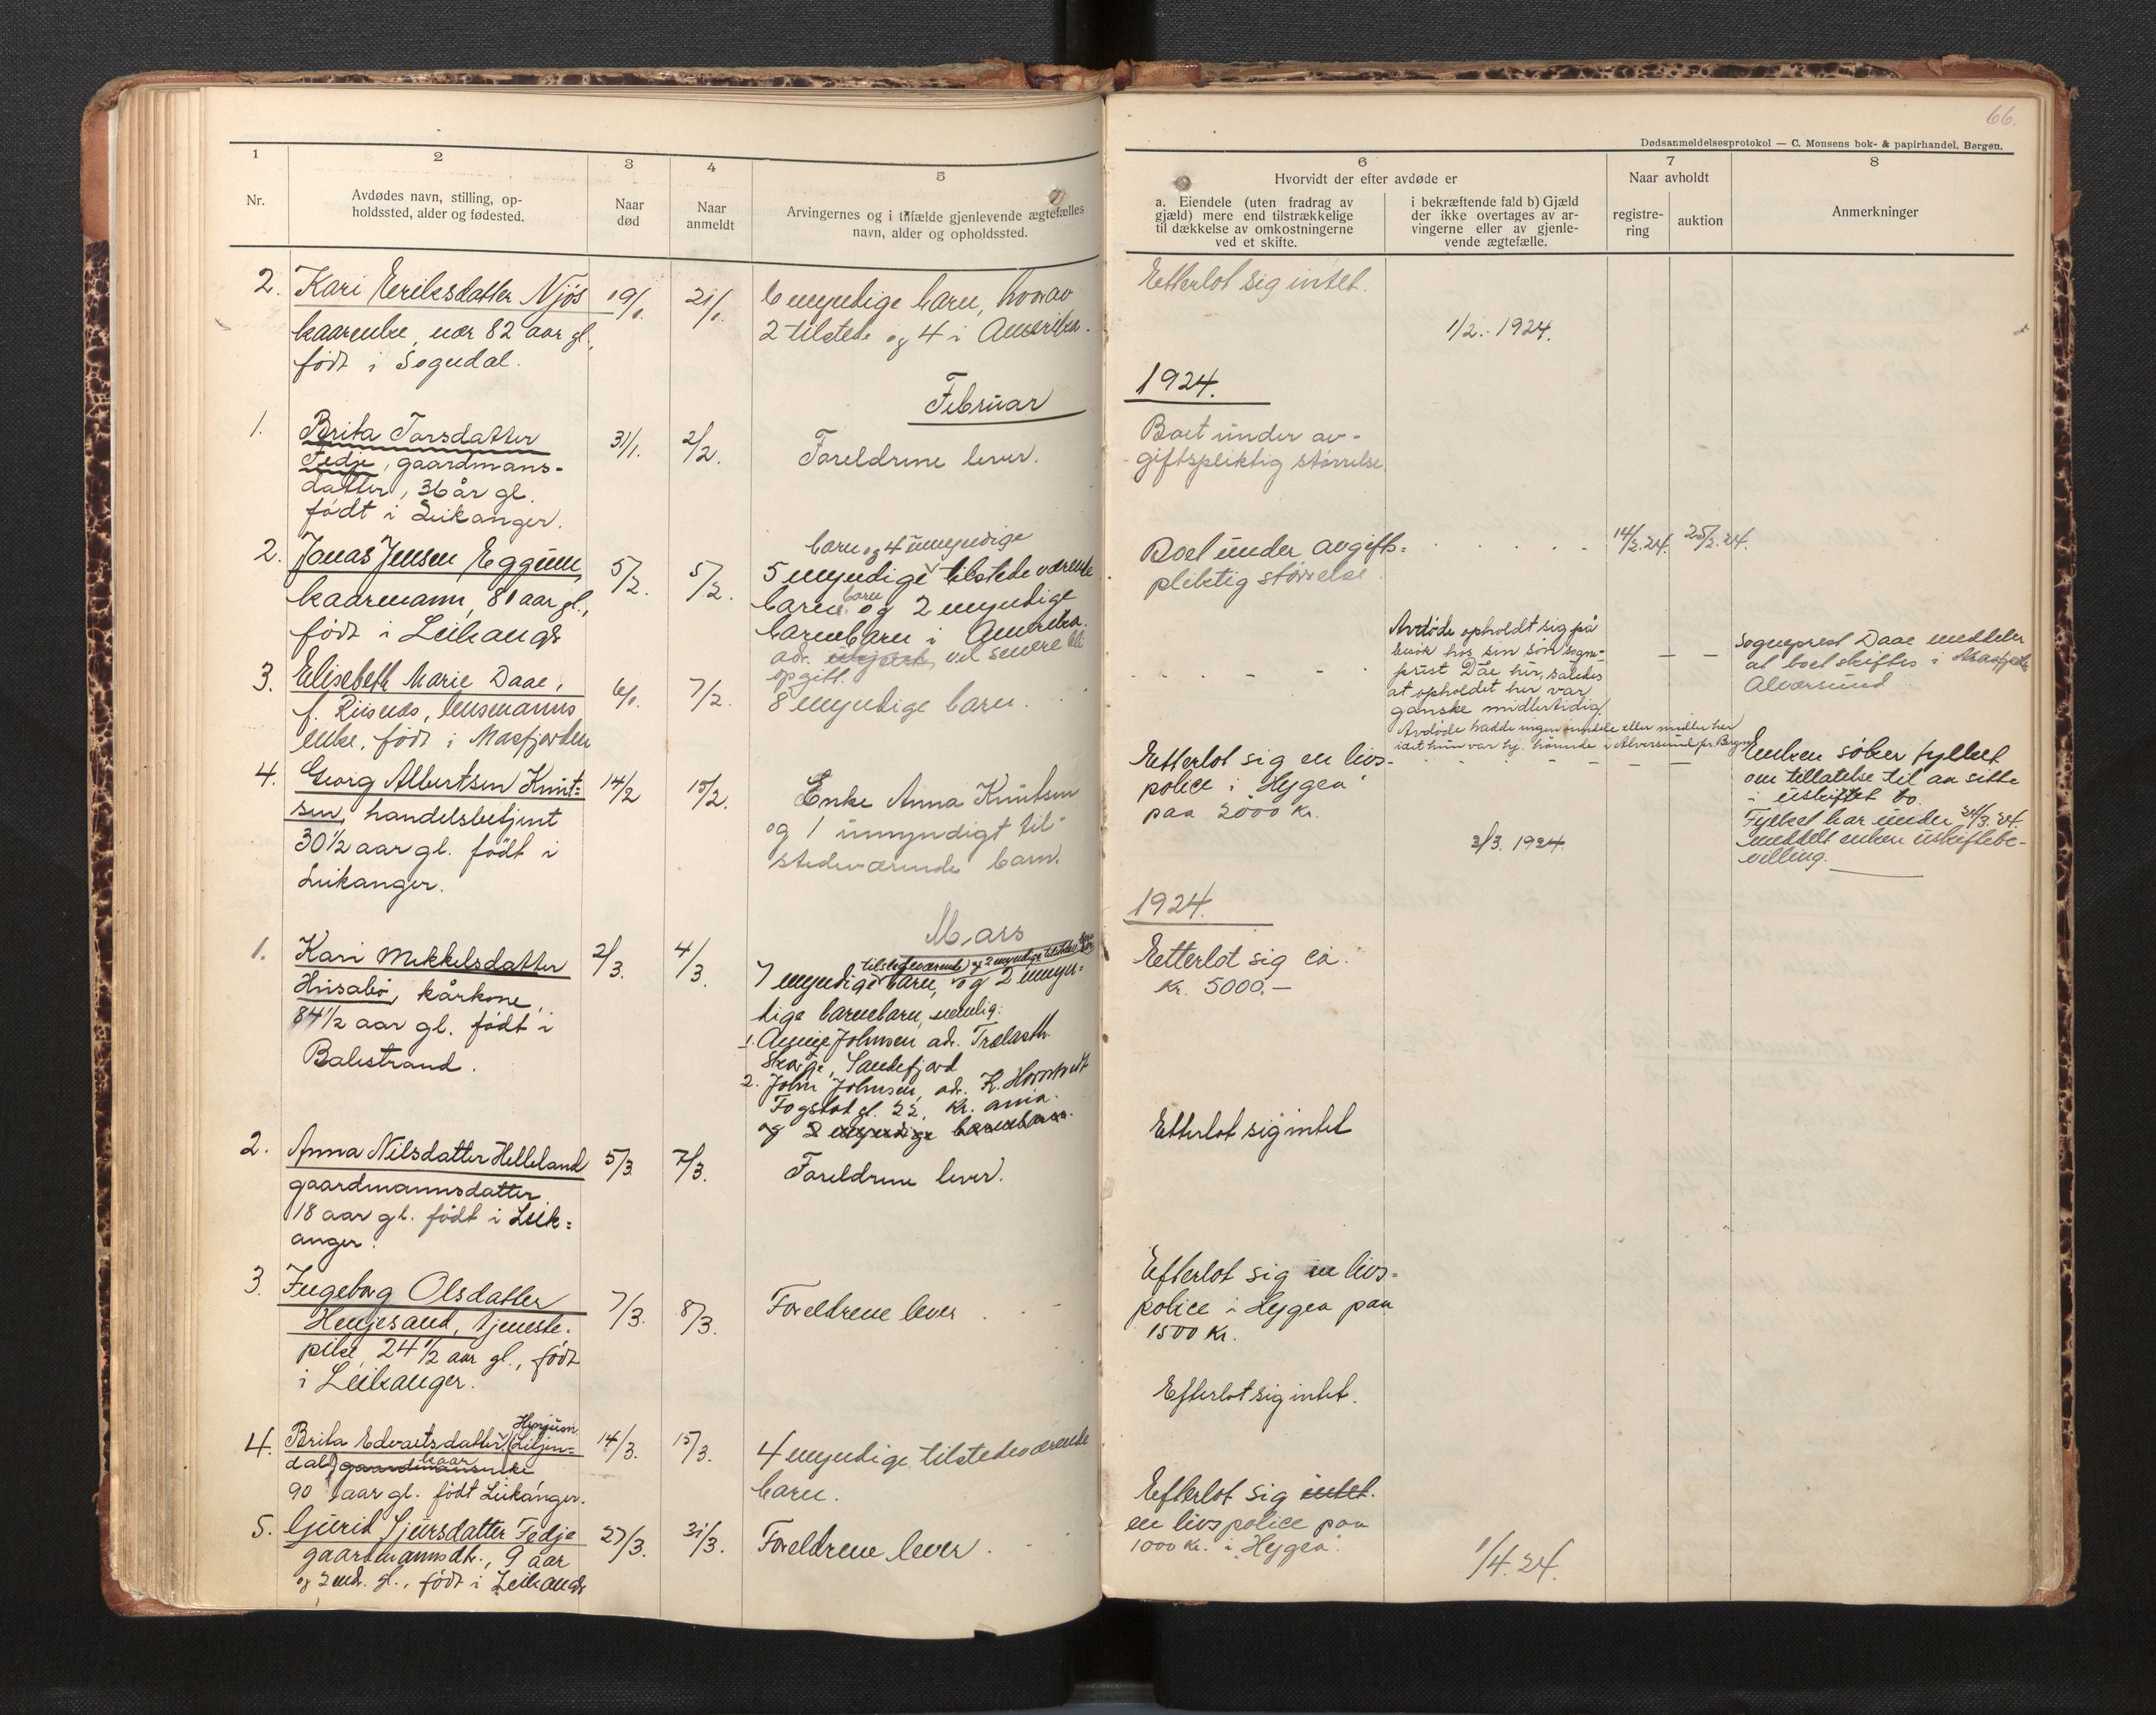 66.
Dødsanmeldelsesprotokol — C. Monsens bok- & papirhandel, Bergen.
1
2
3
4
5
Nr.
Avdødes navn, stilling, op-
holdssted, alder og fødested.
Naar
død
Naar
anmeldt
Arvingernes og i tilfælde gjenlevende ægtefælles
navn, alder og opholdssted.
6
7
8
Hvorvidt der efter avdøde er
a. Eiendele (uten fradrag av
gjæld) mere end tilstrækkelige
til dækkelse av omkostningerne
ved et skifte.
i bekræftende fald b) Gjæld
der ikke overtages av ar-
vingerne eller av gjenle-
vende ægtefælle.
Naar avholdt
registre-
ring
auktion
Anmerkninger
2. Kari Eriksdatter Njøs
kaarenke, nær 82 aar gl.,
født i Sogndal.
19/1.
21/1.
6 myndige barn, hvorav
2 tilstede og 4 i Amerika.
Etterlot sig intet.
1/2. 1924.
Februar
1924.
1. Brita Torsdatter
Fedje, gaardmans-
datter, 36 år gl.
født i Leikanger.
31/1.
2/2.
Foreldrene lever.
Boet under av-
giftspliktig størrelse
2. Jonas Jensen Eggum,
kaarmann, 81 aar gl.,
født i Leikangr
5/2.
5/2.
barn og 4 umyndige
5 myndige tilstedeværende
barne barn og 2 myndige
barnebarn i Amerika.
adr. vil senere bli
opgitt.
Boet under avgifts-
pliktig størrelse.
14/2.24.
25/2.24.
3. Elisebeth Marie Daae,
f. Risnes, lensmanns
enke, født i Masfjorden
6/1.
7/2.
8 myndige barn.
Avdøde opholdt sig på
besøk hos sin søn sogne-
prest Dåe her, således
at opholdet her var
ganske midlertidig.
Avdøde hadde ingen eiendele eller midler her
idet hun var hj. hørende i Alversund pr. Bergen
Sogneprest Daae meddeler
at boet skiftes i
Alversund
4. Georg Albertsen Knut-
sen, handelsbetjent
30 1/2 aar gl. født i
Leikanger.
14/2
15/2.
Enke Anna Knutsen
og 1 umyndigt til-
stedeværende barn.
Etterlot sig en livs-
police i "Hygea"
paa 2000 kr.
3/3. 1924.
Enken søker fylket
om tillatelse til aa sitte
i uskiftet bo.
Fylket har under 24/3.24.
meddelt enken uskiftebe-
villing.
Mars
1924.
1. Kari Mikkelsdatter
Husabø, kårkone,
84 1/2 aar gl. født i
Balestrand.
2/3.
4/3.
tilstedeværende og 2 myndige tilstedev. barnebarn
7 myndige barn, og 2 umyn-
dige barnebarn, nemlig:
1. Johnsen adr. Trælasth.
Skarge, Sandefjord
2. John Johnsen, adr. K. Hornstvedt
Fogslot gt. 22, Kr. ania.
og 2 myndige barnebarn.
Etterlot sig ca.
kr. 5000.—
2. Anna Nilsdatter Helleland
gaardmannsdatter
18 aar gl. født i Leik-
anger.
5/3.
7/3.
Foreldrene lever.
Etterlot sig intet
3. Ingeborg Olsdatter
Henjesand, tjeneste-
pike, 24 1/2 aar gl., født
i Leikanger.
7/3.
8/3.
Foreldrene lever.
Efterlot sig en livs-
police i Hygea paa
1500 kr.
4. Brita Edvartsdatter Henjum (Liljen-
dal) gaardmansenke kaar
90 aar gl. født Leikanger.
14/3.
15/3.
4 myndige tilstedeværende
barn.
Efterlot sig intet.
5. Gurid Sjursdatter Fedje
gaardmannsdtr., 9 aar
og 2 md. gl., født i Leikangr
27/3.
31/3.
Foreldrene lever.
Efterlot sig intet.
en livspolice paa
1000 kr. i "Hygea".
1/4.24.